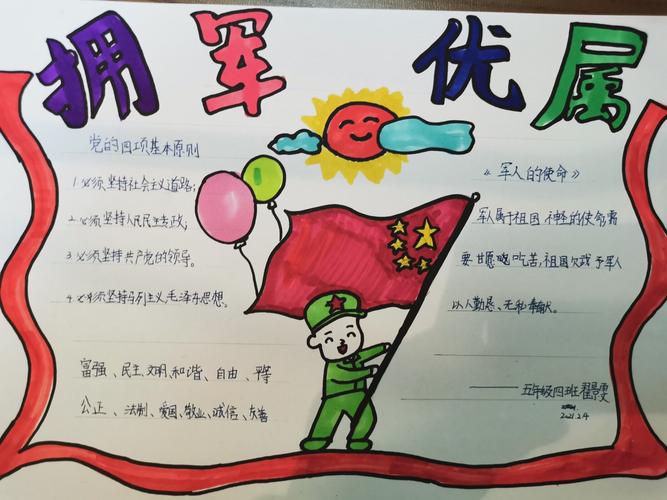 拥军 优属
党的四项基本原则
1.必须坚持社会主义道路;
2.必须坚持人民民主专政;
3.必须坚持共产党的领导。
4.必须坚持马列主义毛泽东思想。
富强、民主、文明、和谐、自由、平等
公正、法制、爱国、敬业、诚信、友善
《军人的使命》
军人属于祖国,神经的使命需
要甘愿吃苦,祖国欠 予军人
以人勤恳、无私奉献。
——五年级四班翟景雯
2021.2.4